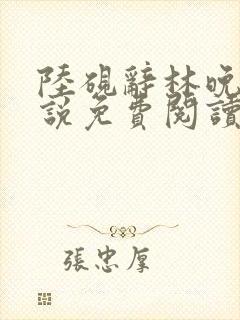 陸硯辭林晚
說免費閱讀
張忠厚